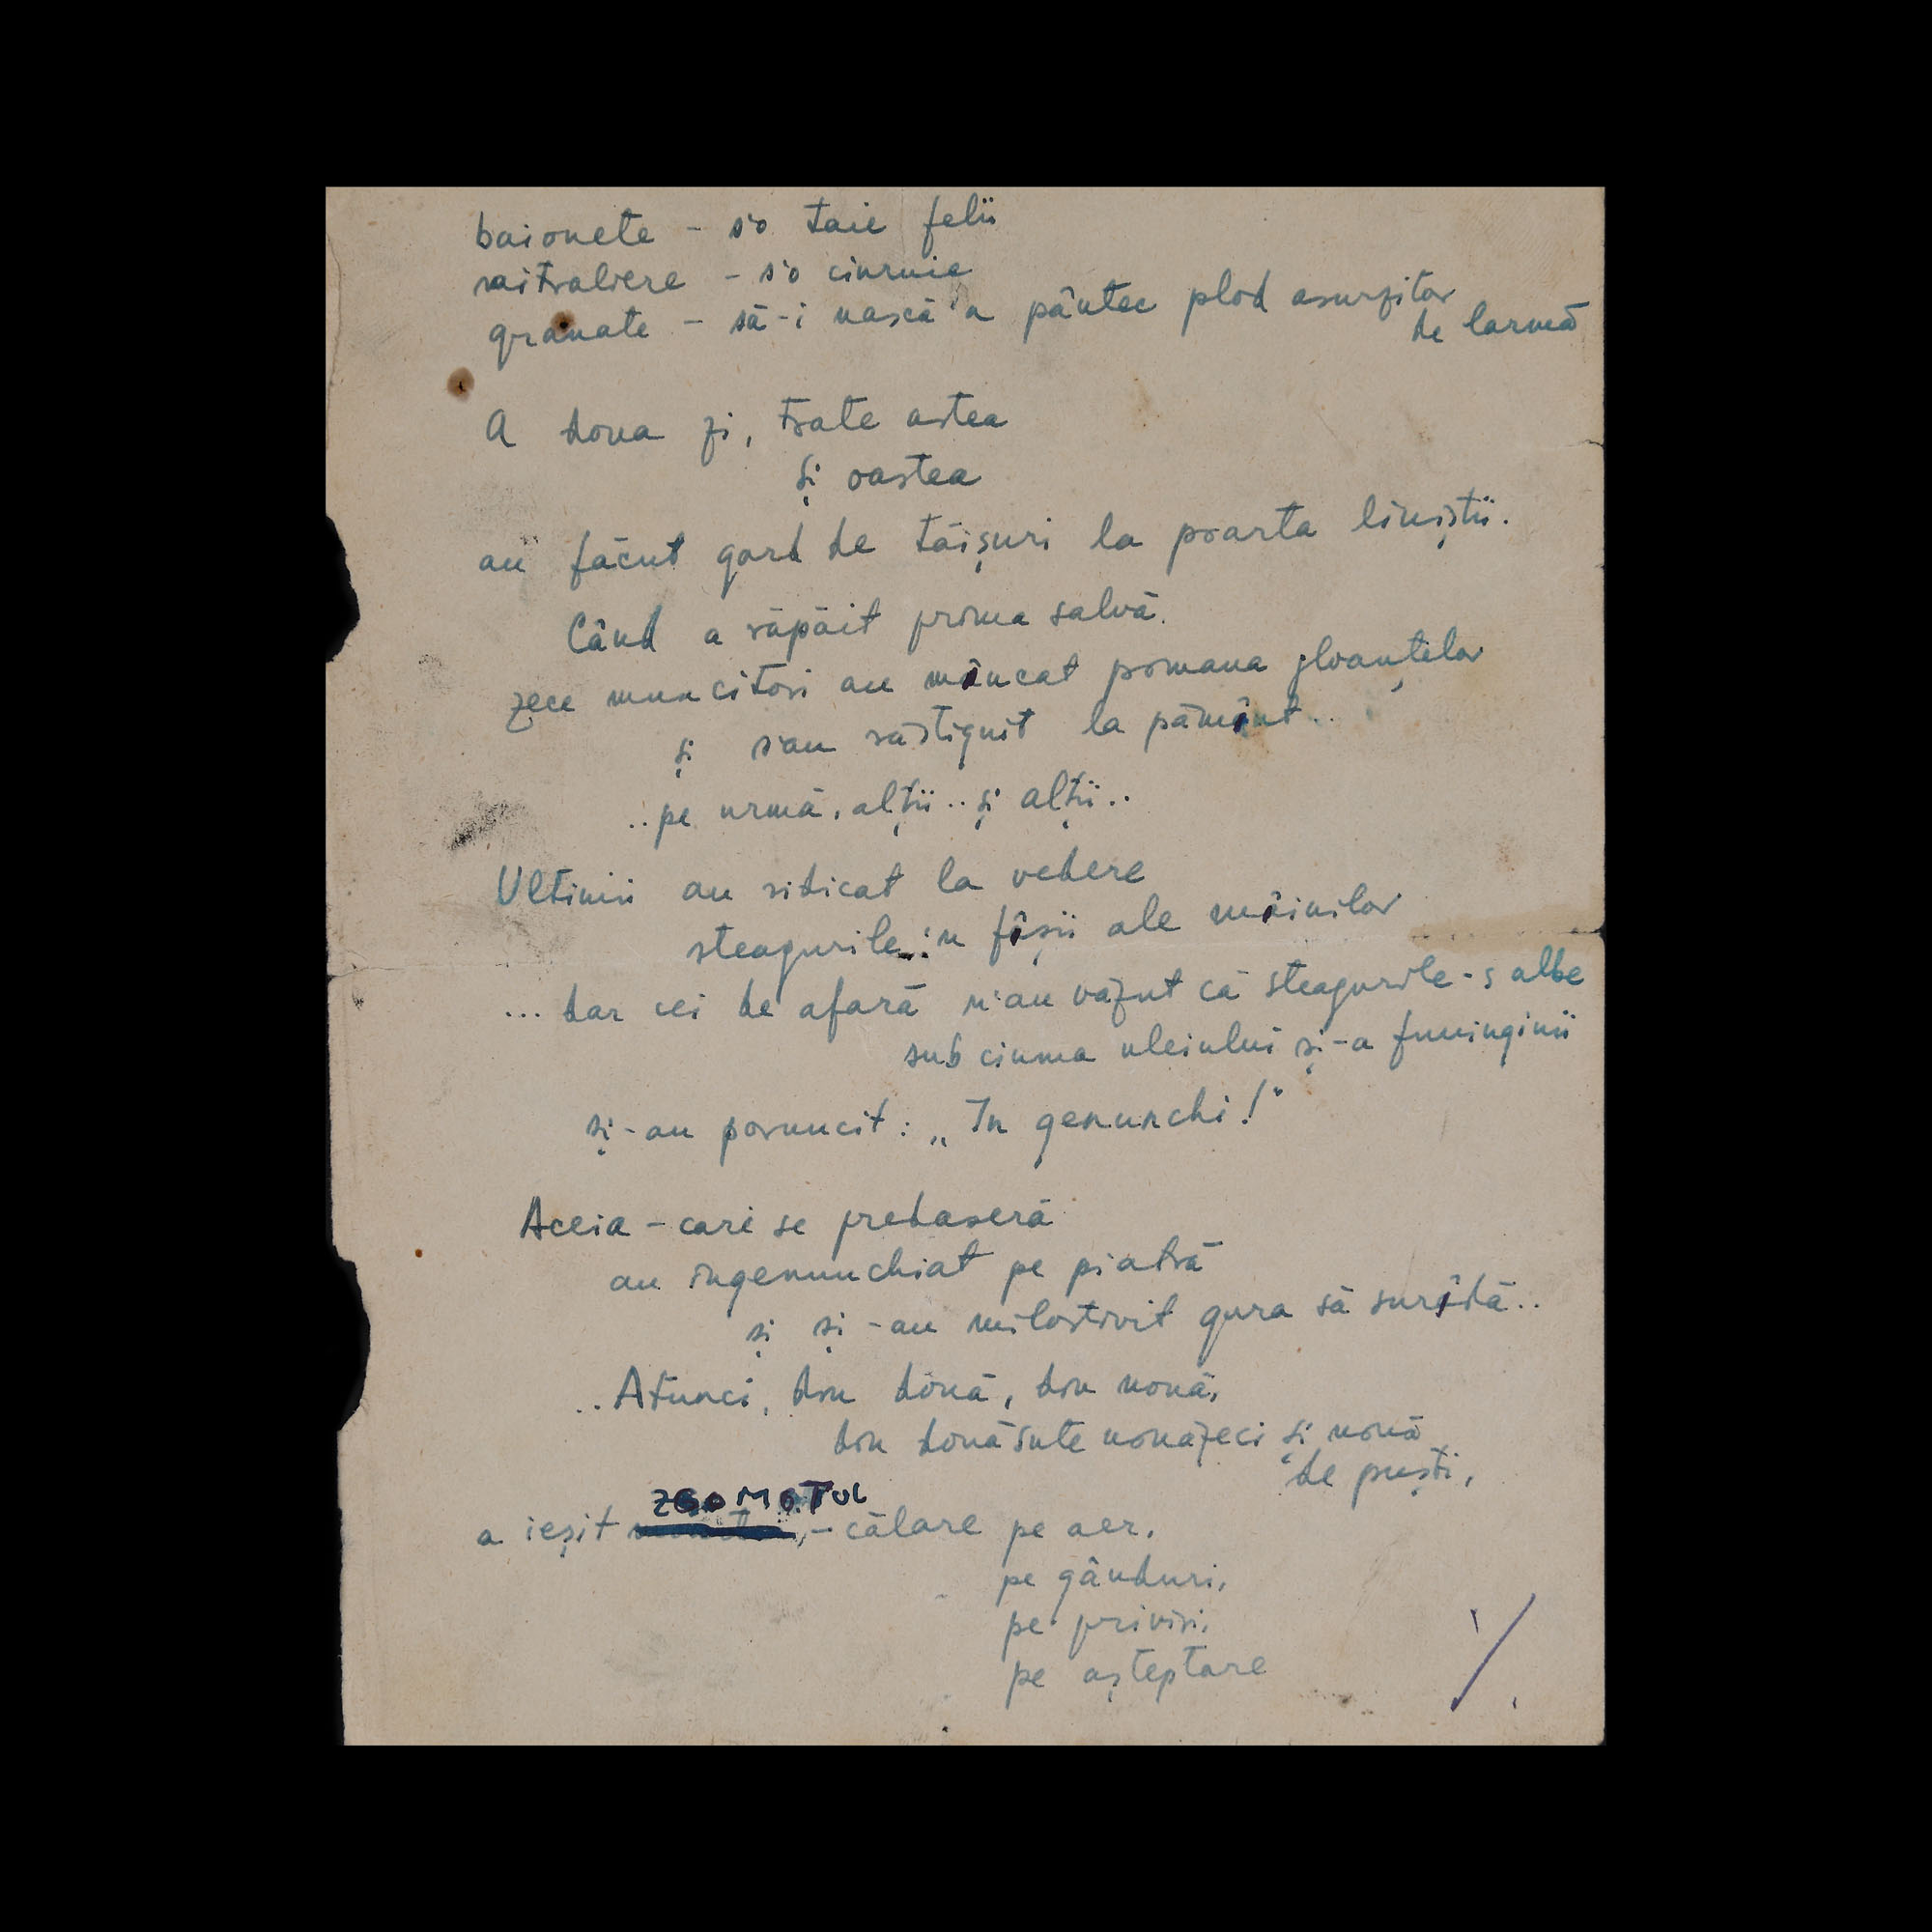 baionete – s'o taie felii
mitraliere – s'o ciuruie
granate – să-i nască'n pântec plod asurzitor
de larmă
A doua zi, toate astea
și oastea
au făcut gard de tăișuri la poarta liniștii.
Când a răpăit prima salvă
zece muncitori au mâncat pomana gloanțelor
și s'au răstignit la pământ..
..pe urmă, alții.. și alții..
Ultimii au ridicat la vedere
steagurile'n fâșii ale mâinilor
... dar cei de afară n'au văzut că steagurile-s albe
sub ciuma uleiului și-a funinginii
și-au poruncit: „In genunchi!"
Aceia – cari se predaseră
au ingenunchiat pe piatră
și și-au milostivit gura să surâdă..
..Atunci, din două, din nouă,
din douăsute nouăzeci și nouă
de puști,
ZGOMOTUL
a ieșit – călare pe aer,
pe gânduri,
pe priviri,
pe așteptare
./.